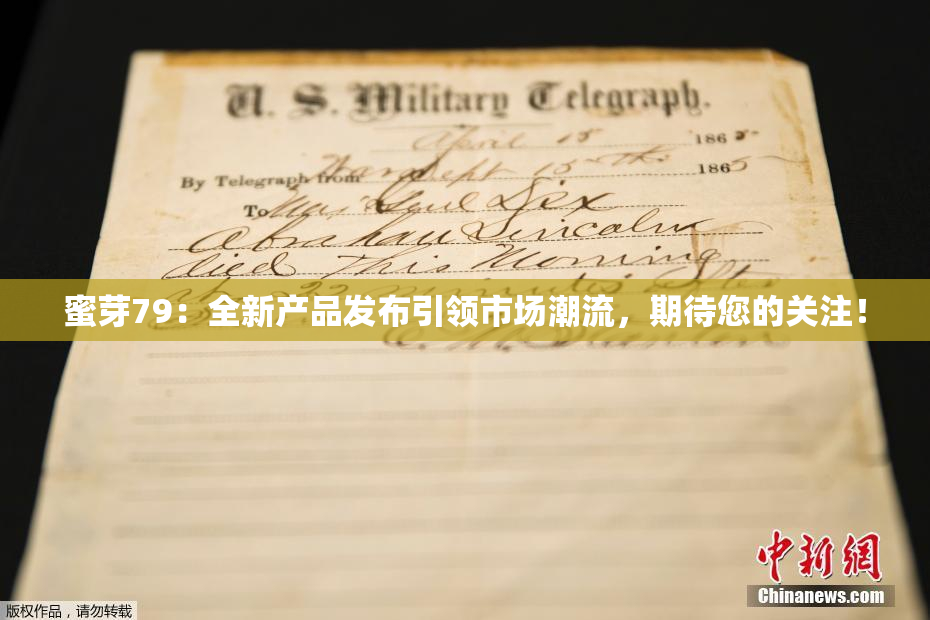 U. S. Military Telegraph.
April 15 1865
By Telegraph from War Dept 15th 1865
To Maj Genl Dix
Abraham Lincoln
died This Morning
22 minutes after
蜜芽79：全新产品发布引领市场潮流，期待您的关注！
E. M. Stanton
中新網
Chinanews.com
版权作品，请勿转载